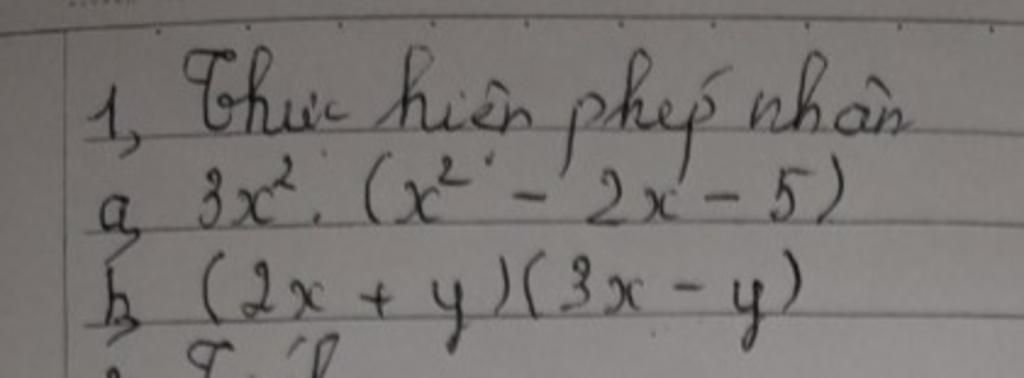 1, Thực hiện phép nhân
a, 3x². (x² - 2x - 5)
b, (2x + y)(3x - y)